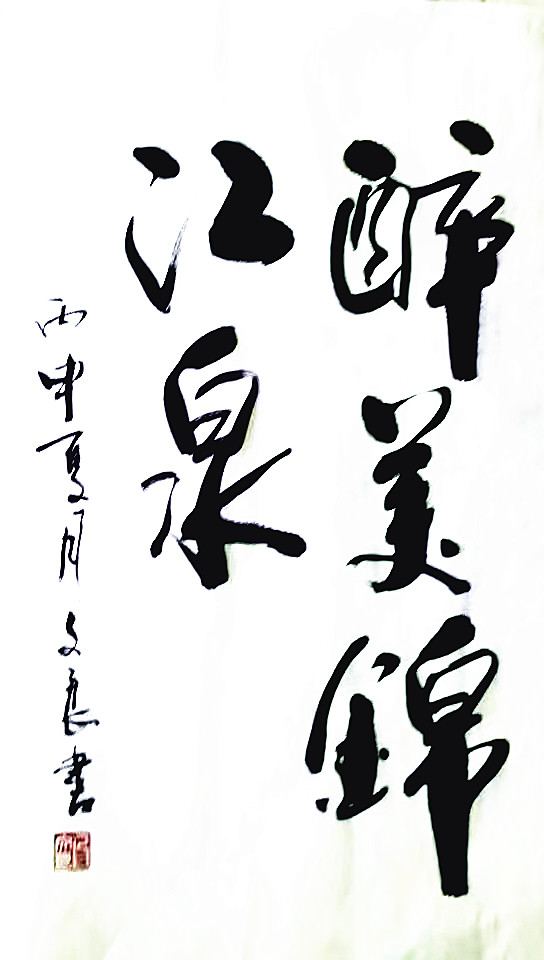 醉美錦
江泉
丙申夏月文良書